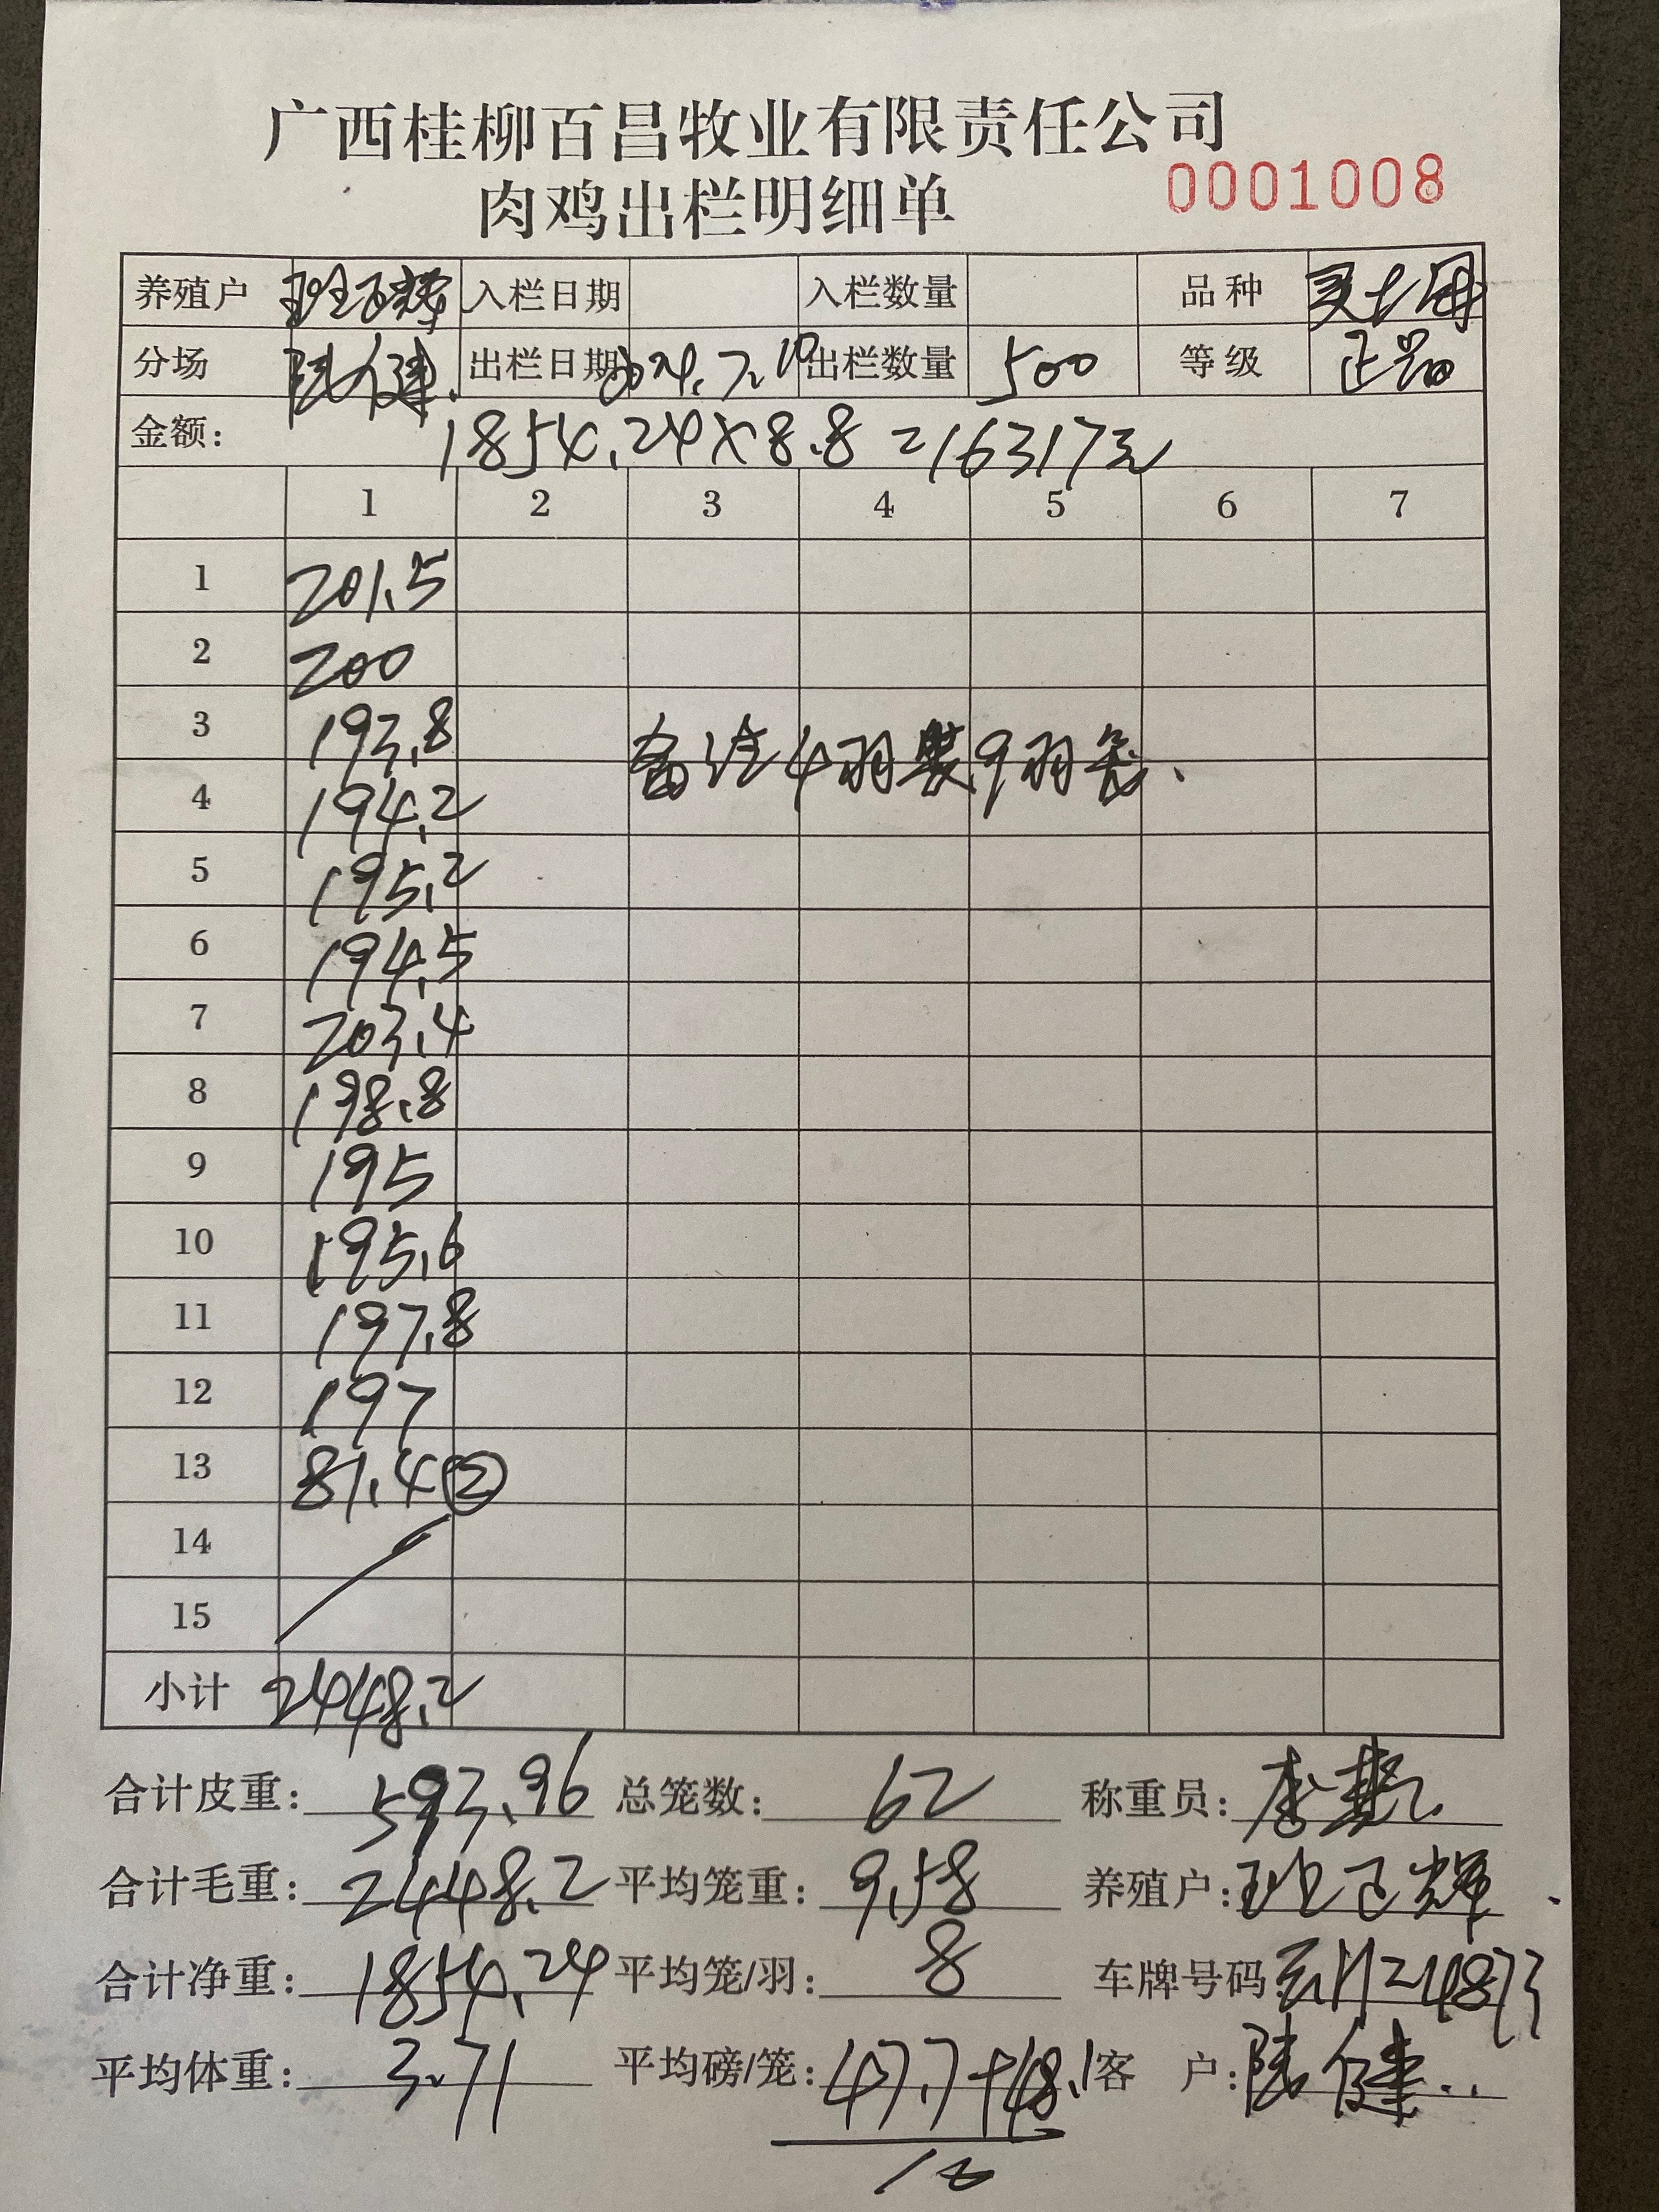 广西桂柳百昌牧业有限责任公司
肉鸡出栏明细单 0001008
养殖户 班 辉 入栏日期 入栏数量 品种
分场 陆健. 出栏日期 2024.7.10 出栏数量 500 等级 正品
金额: 1854.24×8.8=16317元
1 2 3 4 5 6 7
1 201.5
2 200
3 193.8 备注4羽装9羽
4 194.2
5 195.2
6 194.5
7 203.4
8 198.8
9 195
10 195.6
11 197.8
12 197
13 81.4②
14
15
小计 2448.2
合计皮重: 593.96 总笼数: 62 称重员: 李
合计毛重: 2448.2 平均笼重: 9.58 养殖户: 班 辉
合计净重: 1854.24 平均笼/羽: 8 车牌号码:
平均体重: 3.71 平均磅/笼: 47.9+48.1 客 户: 陆健..